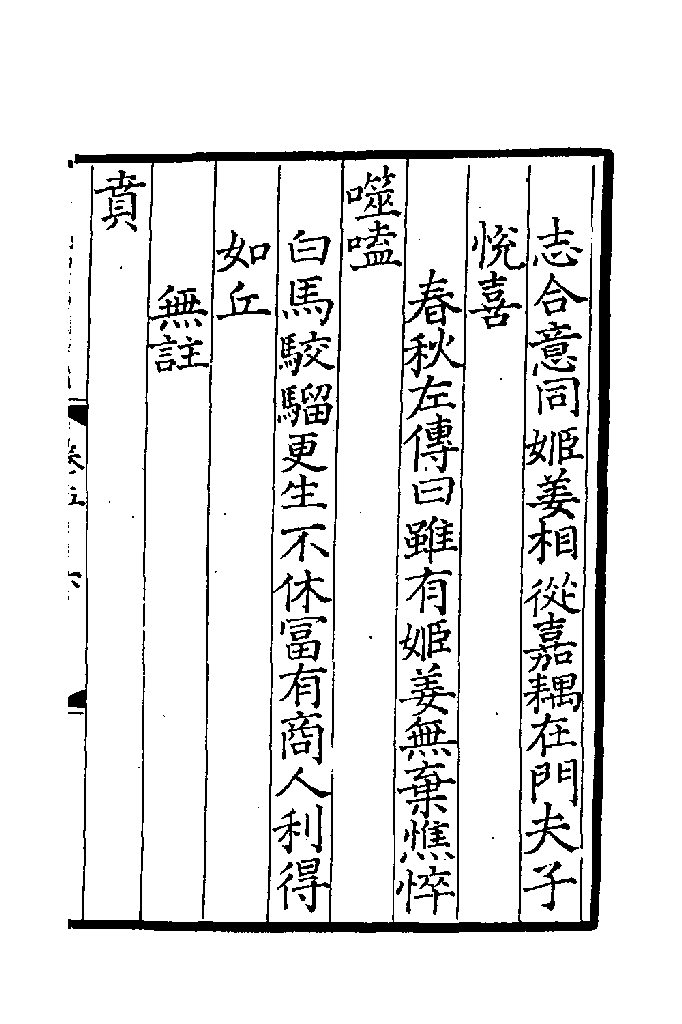 志合意同姬姜相從嘉耦在門夫子
悅喜
春秋左傳曰雖有姬姜無棄憔悴
噬嗑
白馬駮騮更生不休富有商人利得
如丘
無註
賁